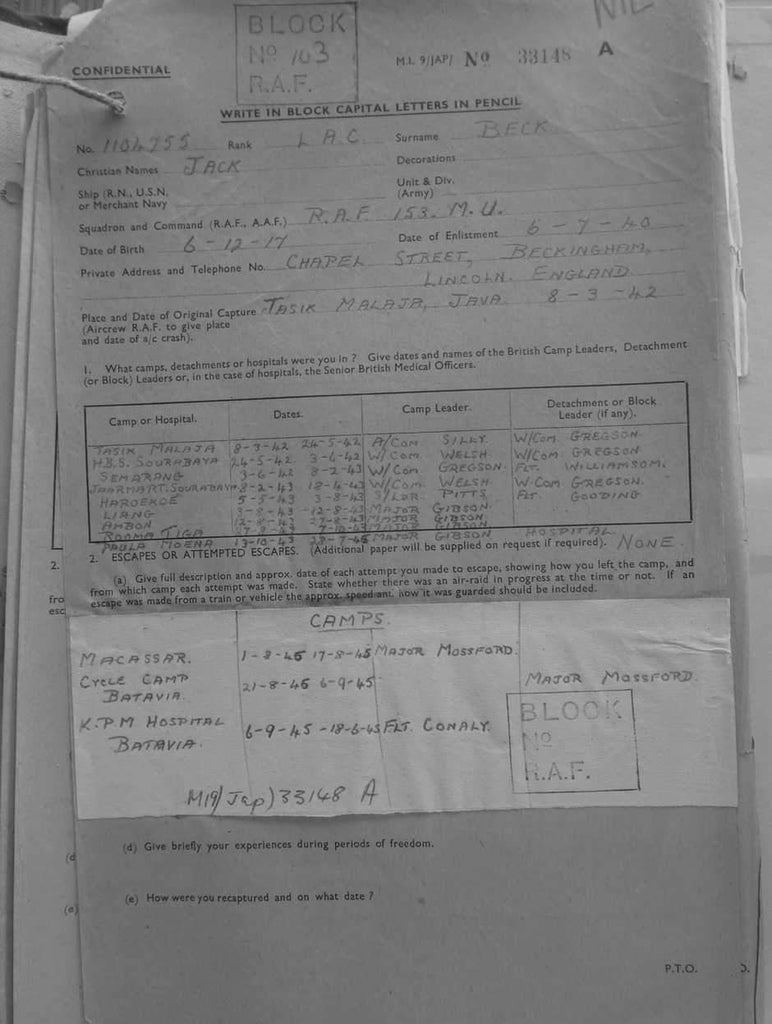 NIL
BLOCK
Nº 103
R.A.F.
M.I. 9/JAP/ Nº 33148 A
CONFIDENTIAL
WRITE IN BLOCK CAPITAL LETTERS IN PENCIL
No. 1104755 Rank L A C. Surname BECK
Christian Names JACK Decorations
Ship (R.N., U.S.N. or Merchant Navy Unit & Div. (Army)
Squadron and Command (R.A.F., A.A.F.) R.A.F. 153. M.U.
Date of Birth 6-12-17 Date of Enlistment 6-7-40
Private Address and Telephone No. CHAPEL STREET, BECKINGHAM,
LINCOLN. ENGLAND
Place and Date of Original Capture TASIK MALAJA, JAVA. 8-3-42
(Aircrew R.A.F. to give place
and date of a/c crash).
1. What camps, detachments or hospitals were you in ? Give dates and names of the British Camp Leaders, Detachment
(or Block) Leaders or, in the case of hospitals, the Senior British Medical Officers.
Camp or Hospital. Dates. Camp Leader. Detachment or Block Leader (if any).
TASIK MALAJA 8-3-42 24-5-42 A/COM SILLY. W/COM GREGSON.
H.B.S. SOURABAYA 24-5-42 3-6-42 W/COM WELSH. W/COM GREGSON.
SEMARANG 3-6-42 8-2-43 W/COM GREGSON. FLT. WILLIAMSOM.
JAARMART. SOURABAYA 8-2-43 18-4-43 W/COM. WELSH. W COM GREGSON.
HAROEKOE 5-5-43 3-8-43 S/LDR PITTS. FLT. GOODING
LIANG 3-8-43 -12-8-43 MAJOR GIBSON.
AMBON 12-8-43 27-8-43 MAJOR GIBSON
ROOMA TIGA MAJOR GIBSON HOSPITAL.
MOENA 13-10-43 MAJOR GIBSON
2. ESCAPES OR ATTEMPTED ESCAPES. (Additional paper will be supplied on request if required). NONE.
(a) Give full description and approx. date of each attempt you made to escape, showing how you left the camp, and
from which camp each attempt was made. State whether there was an air-raid in progress at the time or not. If an
escape was made from a train or vehicle the approx. speed and how it was guarded should be included.
CAMPS.
MACASSAR. 1-8-45 17-8-45 MAJOR MOSSFORD.
CYCLE CAMP BATAVIA. 21-8-45 6-9-45 MAJOR MOSSFORD.
K.P.M HOSPITAL BATAVIA. 6-9-45 -18-6-45 FLT. CONALY.
BLOCK
Nº
R.A.F.
M19/Jap) 33148 A
(d) Give briefly your experiences during periods of freedom.
(e) How were you recaptured and on what date ?
P.T.O.